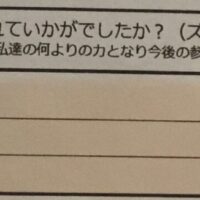 れていかがでしたか？（ズ
私達の何よりの力となり今後の参